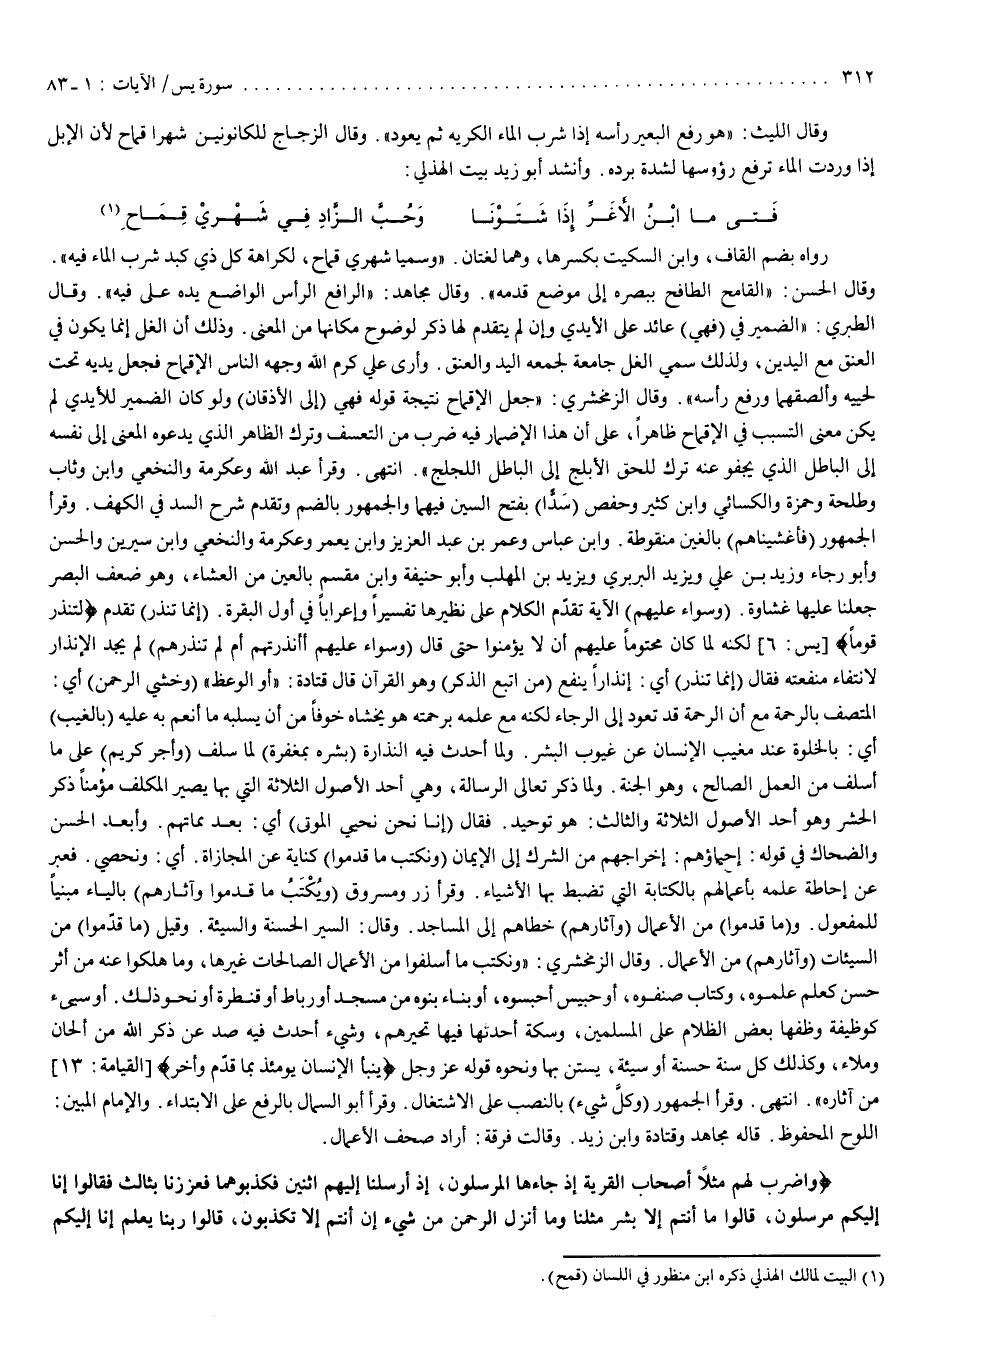 ٣١٢ .......................................................... سورة يس/ الآيات : ١ ـ ٨٣
وقال الليث: «هو رفع البعير رأسه إذا شرب الماء الكريه ثم يعود». وقال الزجاج للكانونيـن شهرا قماح لأن الإبل
إذا وردت الماء ترفع رؤوسها لشدة برده. وأنشد أبو زيد بيت الهذلي:
فَتـى مـا ابْـنُ الأَغَـرِّ إِذَا شَـتَـوْنَـا وَحُبَّ الـزَّادِ فِـي شَـهْـرَيْ قِـمَـاحِ(١)
رواه بضم القاف، وابن السكيت بكسرها، وهما لغتان. «وسميا شهري قماح، لكراهة كل ذي كبد شرب الماء فيه».
وقال الحسن: «القامح الطافح ببصره إلى موضع قدمه». وقال مجاهد: «الرافع الرأس الواضـع يده علـى فيه». وقـال
الطبري: «الضمير في (فهي) عائد على الأيدي وإن لم يتقدم لها ذكر لوضوح مكانها من المعنى. وذلك أن الغل إنما يكون في
العنق مع اليدين، ولذلك سمي الغل جامعة لجمعه اليد والعنق. وأرى علي كرم الله وجهه الناس الإقماح فجعل يديه تحت
لحييه وألصقهما ورفع رأسه». وقال الزمخشري: «جعل الإقماح نتيجة قوله فهي (إلى الأذقان) ولو كان الضمير للأيدي لم
يكن معنى التسبب في الإقماح ظاهراً، على أن هذا الإضمار فيه ضرب من التعسف وترك الظاهر الذي يدعوه المعنى إلى نفسه
إلى الباطل الذي يجفو عنه ترك للحق الأبلج إلى الباطل اللجلج». انتهى. وقرأ عبد الله وعكرمة والنخعي وابن وثاب
وطلحة وحمزة والكسائي وابن كثير وحفص (سَدًّا) بفتح السين فيهما والجمهور بالضم وتقدم شرح السد في الكهف. وقرأ
الجمهور (فأغشيناهم) بالغين منقوطة. وابن عباس وعمر بن عبد العزيز وابن يعمر وعكرمة والنخعي وابن سيرين والحسن
وأبو رجاء وزيد بـن علي ويزيد البربري ويزيد بن المهلب وأبو حنيفة وابن مقسم بالعين من العشاء، وهو ضعف البصر
جعلنا عليها غشاوة. (وسواء عليهم) الآية تقدّم الكلام على نظيرها تفسيراً وإعراباً في أول البقرة. (إنما تنذر) تقدم ﴿لتنذر
قوماً﴾ [يس: ٦] لكنه لما كان محتوماً عليهم أن لا يؤمنوا حتى قال (وسواء عليهم أأنذرتهم أم لم تنذرهم) لم يجد الإنذار
لانتفاء منفعته فقال (إنما تنذر) أي: إنذاراً ينفع (من اتبع الذكر) وهو القرآن قال قتادة: «أو الوعظ» (وخشي الرحمن) أي:
المتصف بالرحمة مع أن الرحمة قد تعود إلى الرجاء لكنه مع علمه برحمته هو يخشاه خوفاً من أن يسلبه ما أنعم به عليه (بالغيب)
أي: بالخلوة عند مغيب الإنسان عن غيوب البشر. ولما أحدث فيه النذارة (بشره بمغفرة) لما سلف (وأجر كريم) على ما
أسلف من العمل الصالح، وهو الجنة. ولما ذكر تعالى الرسالة، وهي أحد الأصول الثلاثة التي بها يصير المكلف مؤمناً ذكر
الحشر وهو أحد الأصول الثلاثة والثالث: هو توحيد. فقال (إنـا نحن نحيي الموتى) أي: بعـد مماتهم. وأبعـد الحسن
والضحاك في قوله: إحياؤهم: إخراجهم من الشرك إلى الإيمان (ونكتب ما قدموا) كناية عن المجازاة. أي: ونحصي. فعبر
عن إحاطة علمه بأعمالهم بالكتابة التي تضبط بها الأشياء. وقرأ زر ومسروق (ويُكْتَبُ ما قـدموا وآثـارهم) باليـاء مبنياً
للمفعول. و(ما قدموا) من الأعمال (وآثارهم) خطاهم إلى المساجد. وقال: السير الحسنة والسيئة. وقيل (ما قدّموا) من
السيئات (وآثارهم) من الأعمال. وقال الزمخشري: «ونكتب ما أسلفوا من الأعمال الصالحات غيرها، وما هلكوا عنه من أثر
حسن كعلم علمـوه، وكتاب صنفـوه، أو حبيس أحبسوه، أو بنـاء بنوه من مسجـد أو رباط أو قنـطرة أو نحـو ذلـك. أو سيىء
كوظيفة وظفها بعض الظلام على المسلمين، وسكة أحدثها فيها تحيرهم، وشيء أحدث فيه صد عن ذكر الله من ألحان
وملاء، وكذلك كل سنة حسنة أو سيئة، يستن بها ونحوه قوله عز وجل ﴿ينبأ الإنسان يومئذ بما قدّم وأخر﴾ [القيامة: ١٣]
من آثاره». انتهى. وقرأ الجمهور (وكلَّ شيء) بالنصب على الاشتغال. وقرأ أبو السمال بالرفع على الابتداء. والإمام المبين:
اللوح المحفوظ. قاله مجاهد وقتادة وابن زيد. وقالت فرقة: أراد صحف الأعمال.
﴿واضرب لهم مثلًا أصحاب القرية إذ جاءها المرسلون، إذ أرسلنا إليهم اثنين فكذبوهما فعززنا بثالث فقالوا إنا
إليكم مرسلون، قالوا ما أنتم إلا بشر مثلنا وما أنزل الرحمن من شيء إن أنتم إلا تكذبون، قالوا ربنا يعلم إنا إليكم
(١) البيت لمالك الهذلي ذكره ابن منظور في اللسان (قمح).